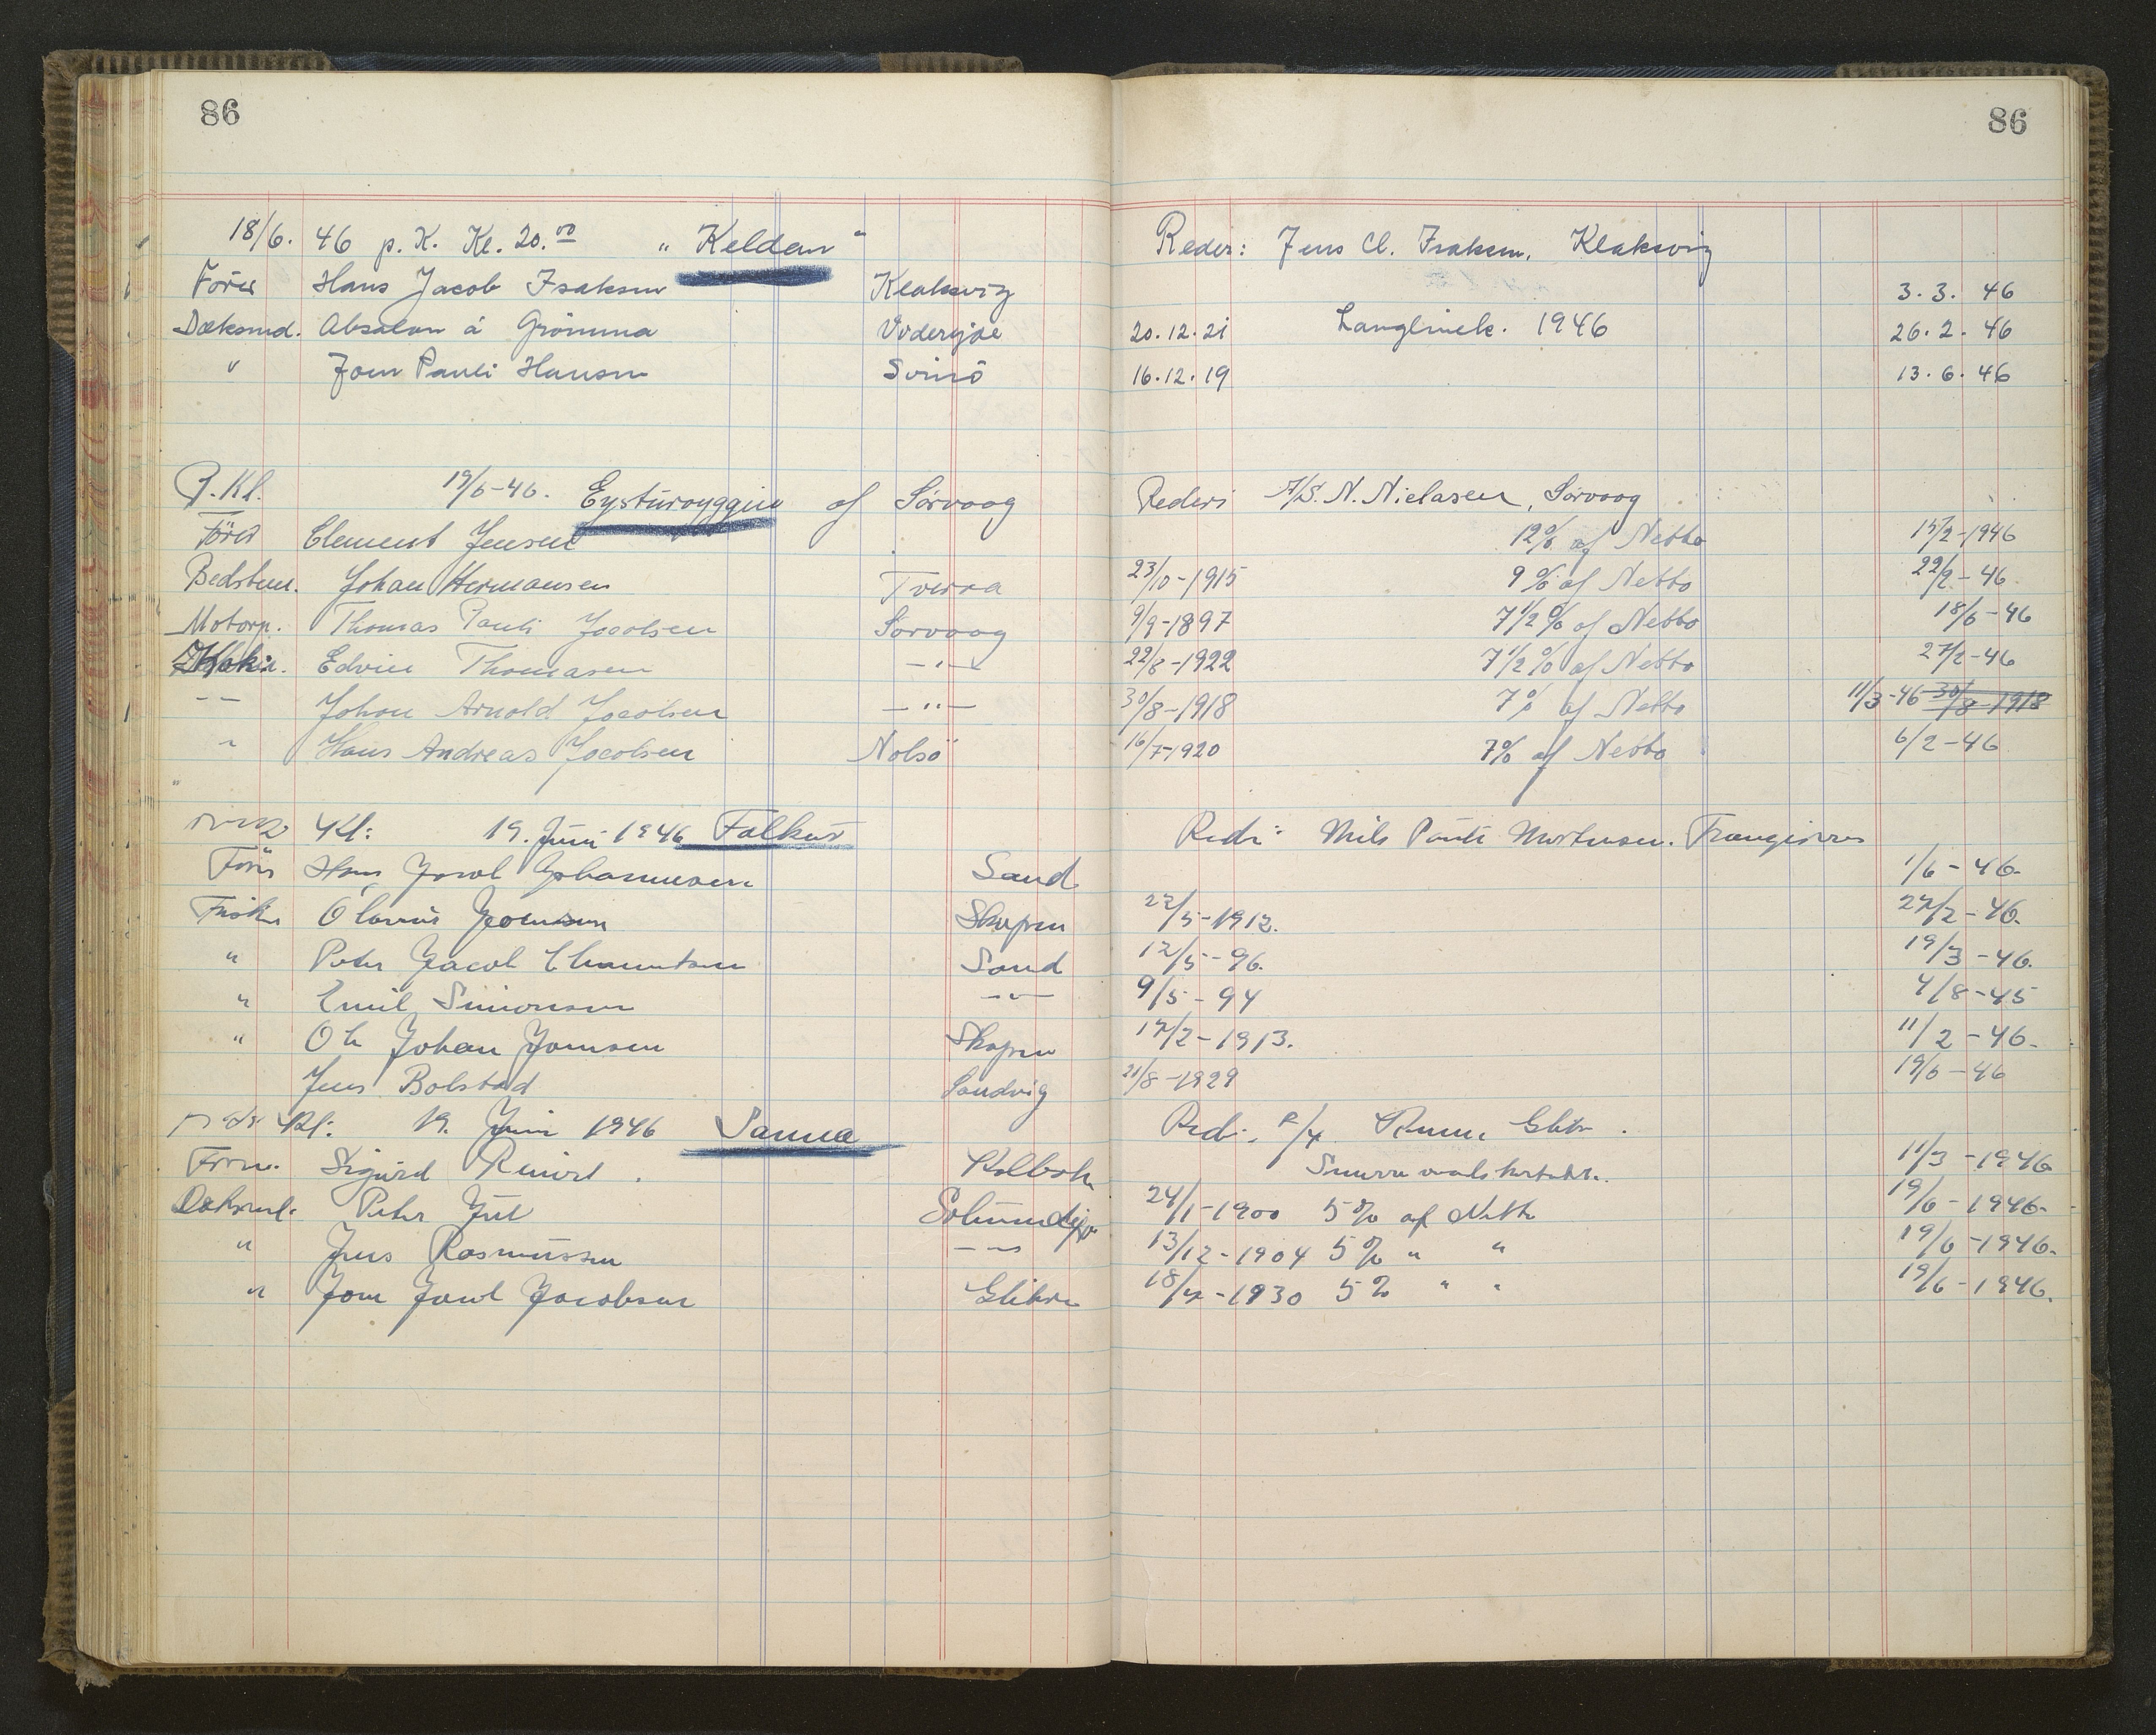 86 86
18/6. 46 p. K. Kl. 20.00 " Keldan " Reder: Jens Cl. Isaksen, Klaksvig
Förer Hans Jacob Isaksen Klaksvig 3. 3. 46
Dæksmd. Absalon á Grömma Viderejde 20.12.21 Langlinek. 1946 26. 2. 46
" Joen Pauli Hansen Svinö 16.12.19 13. 6. 46
P. Kl. 19/6-46. Eysturoyggin af Sörvaag Rederi A/S. N. Nielasen, Sörvaag
Förer Clement Jensen 12% af Netto 15/2-1946
Bedstem. Johan Hermansen Tverra 23/10-1915 9% af Netto 22/2-46
Motorp. Thomas Pauli Jacobsen Sörvaag 9/9-1897 7 1/2 % af Netto 18/6-46
Edvin Thomasen -"- 22/8-1922 7 1/2 % af Netto 27/2-46
-- Johan Arnold Jacobsen -"- 30/8-1918 7% af Netto 11/3-46 30/8-1918
" Hans Andreas Jacobsen Nolsö 16/7-1920 7% af Netto 6/2-46
Kl: 19. Juni 1946 Falkur Redr: Nils Pauli Mortensen. Frangisvaag
Förer Hans Jacob Johannesen Sand 1/6-46.
Fisker Olavur Joensen Skopun 22/5-1912. 27/2-46.
" Peter Jacob Clementsen Sand 12/5-96. 19/3-46.
" Emil Simonsen -"- 9/5-94 4/8-45
" Ole Johan Joensen Skopun 17/2-1913. 11/2-46.
Jens Bolstad Sandvig 21/8-1929 19/6-46
Kl: 19. Juni 1946 Sanna Redr. Glibre
Förer. Sigurd Reinert. 11/3-1946
Dæksmd. Peter Juul Solmundefj. 24/1-1900 5% af Netto 19/6-1946.
" Jens Rasmussen -"- 13/12-1904 5% " " 19/6-1946.
" Joen Jacob Jacobsen Glibre 18/4-1930 5% " " 19/6-1946.